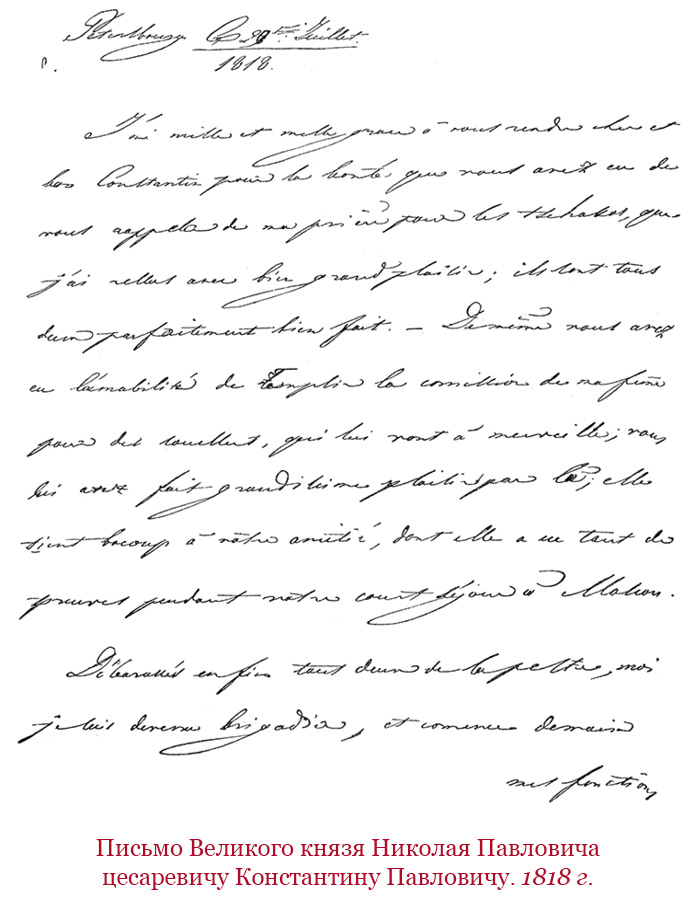 Petersbourg 1818. Juillet.
J'ai mille et mille grace à vous rendre cher et
bon Constantin pour la bonté que vous avez eu de
vous rappeler de ma prière pour les tschakos, que
j'ai reçus avec bien grand plaisir; ils sont tous
deux parfaitement bien fait. — De même vous avez
eu l'amabilité de remplir la comission de ma femme
pour des souliers, qui lui vont à merveille; vous
lui avez fait grandissime plaisir par là; elle
tient beaucoup à votre amitié, dont elle a eu tant de
preuves pendant notre court séjour à
Débarassés enfin tout deux de la peste, moi
je suis devenu brigadier, et comence demain
mes fonctions
Письмо Великого князя Николая Павловича
цесаревичу Константину Павловичу. 1818 г.